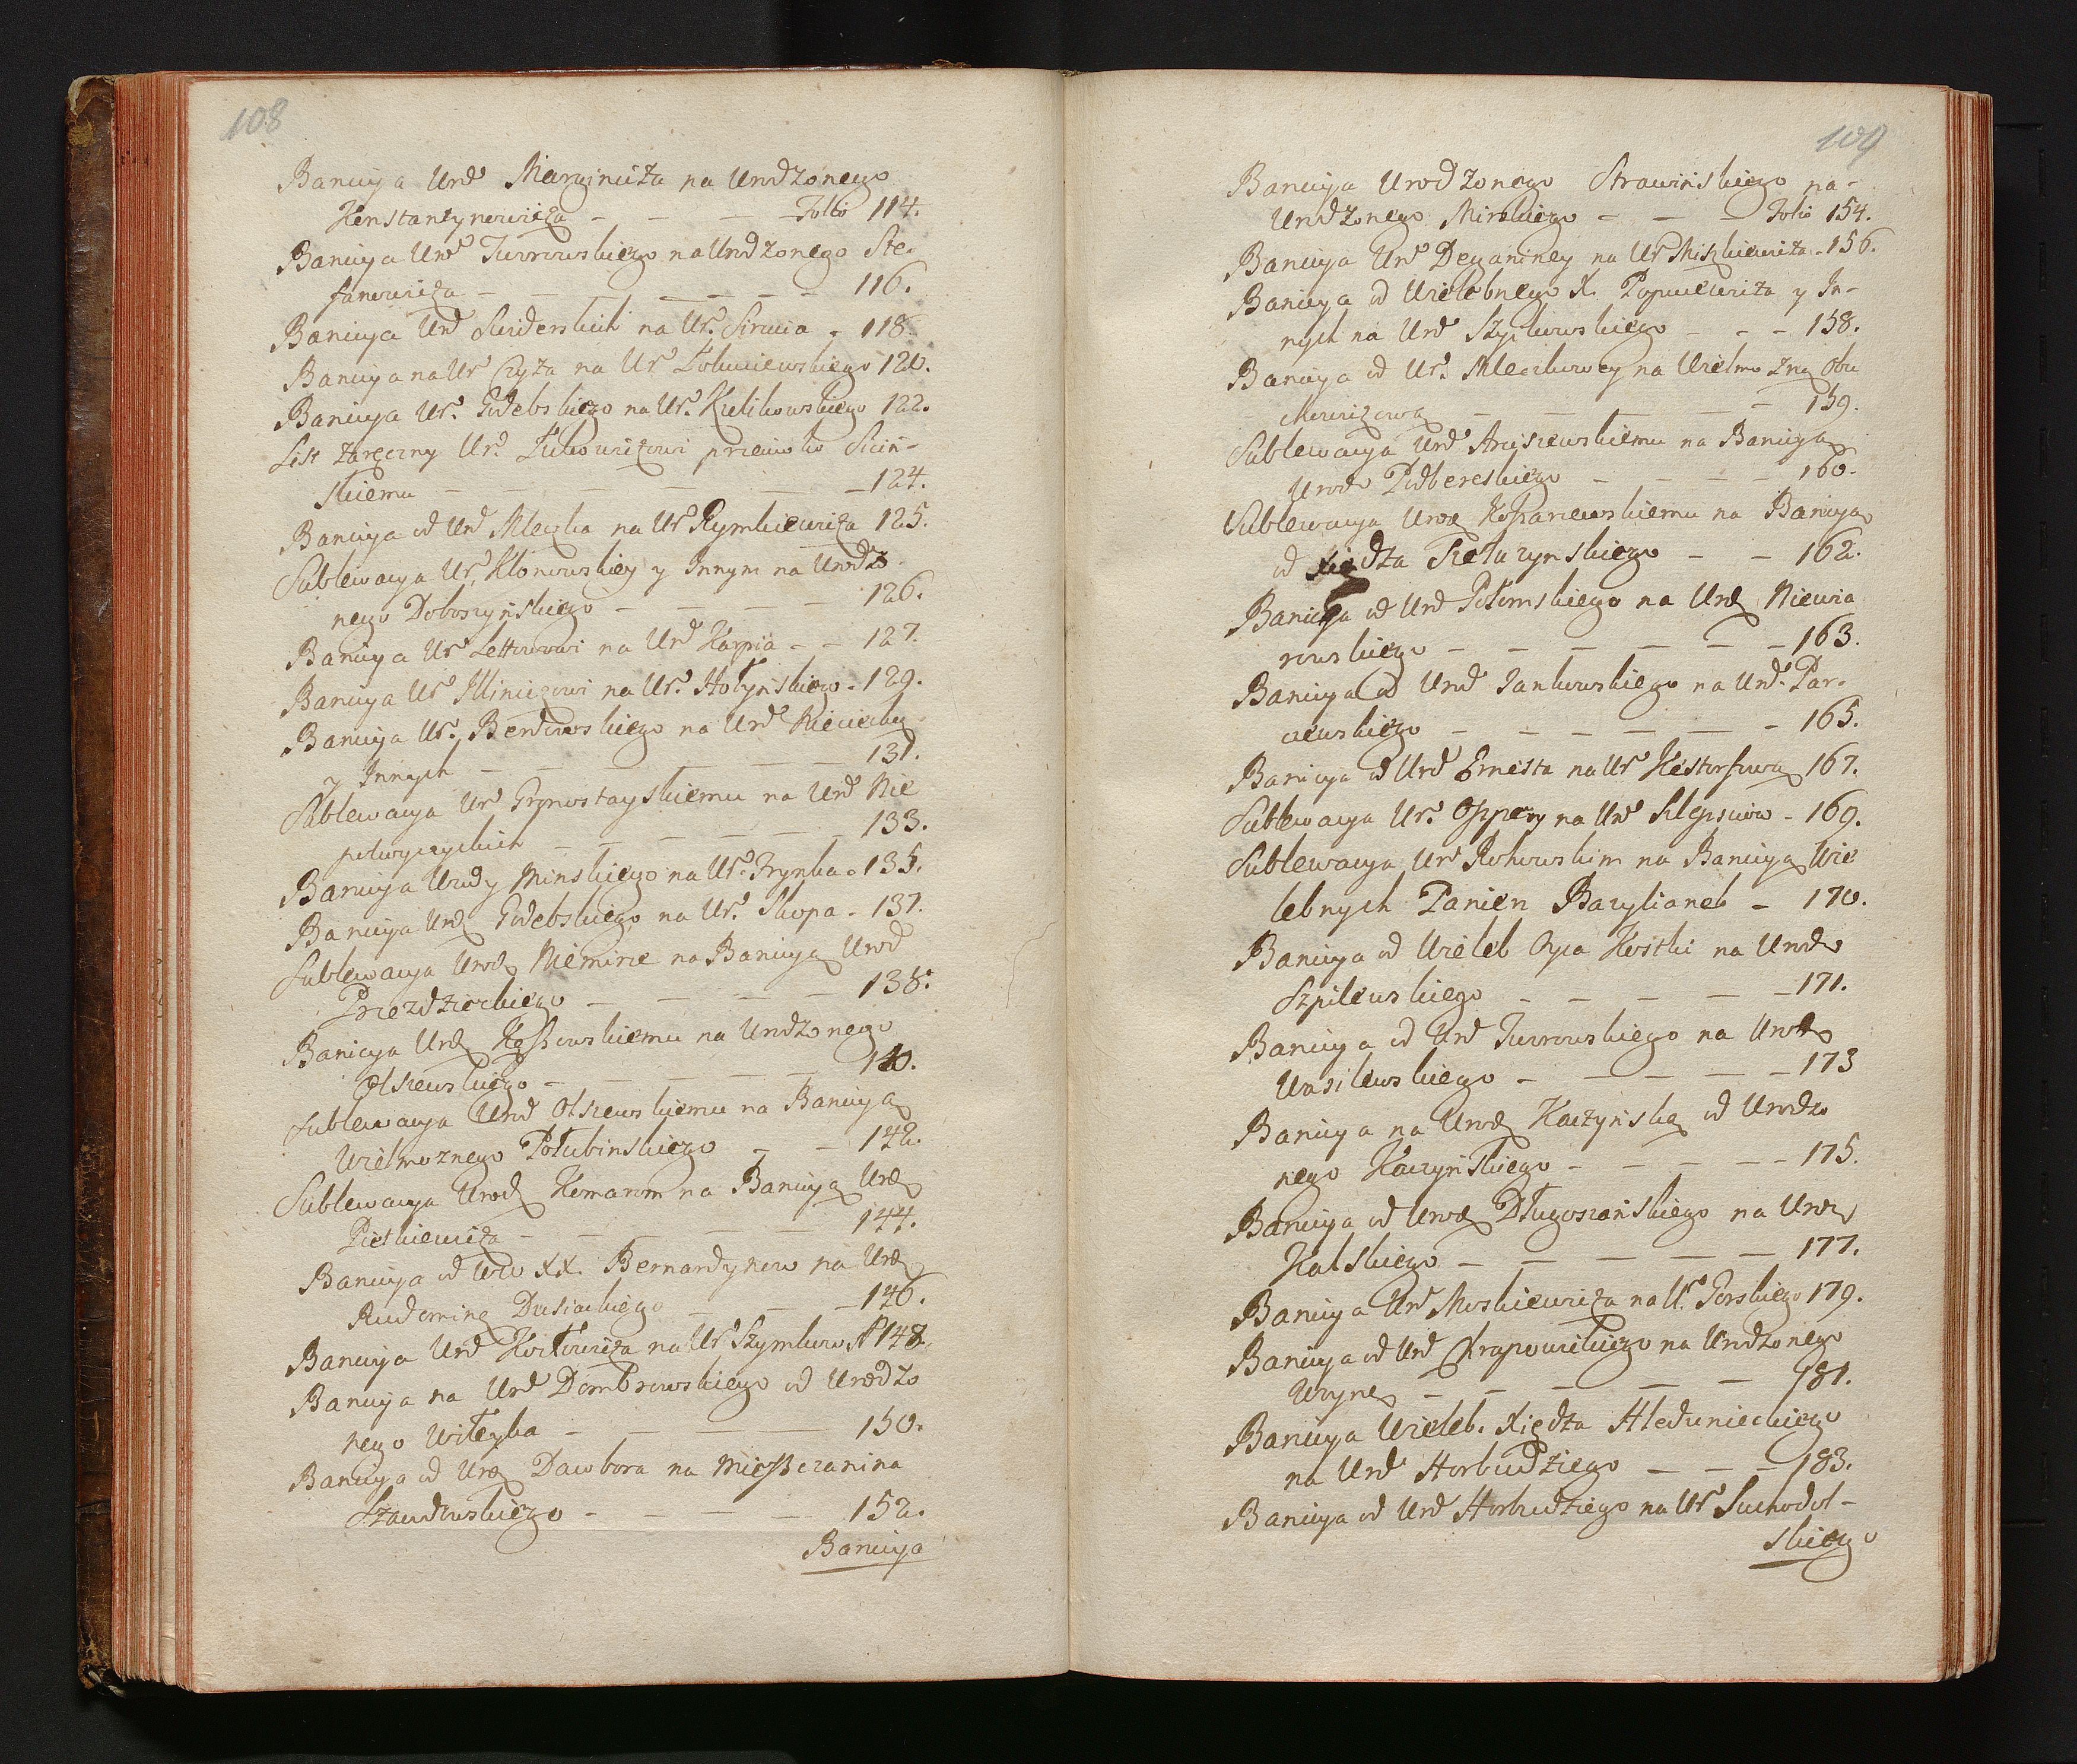 108
Banicya Urd Marcinicza na Urodzonego
Konstantynowicza - - - Folio 114.
Banicya Uro Turrowskiego na Urodzonego Ste-
fanowicza - - - - - 116.
Banicya Urd Swiderskich na Ur. Sirucia - 118.
Banicya na Ur Czyża na Ur 120.
Banicya Ur. Godebskiego na Ur. Kulikowskiego 122.
List Zaręczny Ur. Żukowiczowi przeciwko Siciń-
skiemu - - - - - 124.
Banicya od Urd Mleczka na Ur Rymkiewicza 125.
Sublewacya Ur. Kłonowskiey y Innym na Urodzo
nego Doboszyńskiego - - - - 126.
Banicya Ur Lettowowi na Urd Karpia - - 127.
Banicya Ur Illiniczowi na Ur. Hołyńskiego - 129.
Banicya Ur. Berdowskiego na Urd
y Innych - - - - - 131.
Sublewacya Ur Gronostayskiemu na Urd Nie
pokoyczyckich - - - - - 133.
Banicya Urody Minskiego na Ur. Frynka - 135.
Banicya Urd Godebskiego na Ur. Skopa - 137.
Sublewacya Urod Niemirze na Banicyą Urod
Przezdzieckiego - - - - 138.
Banicya Urd Kossowskiemu na Urodzonego
Olszewskiego - - - - - 140.
Sublewacya Urod Olszewskiemu na Banicyą
Wielmoznego Połubinskiego - - 142.
Sublewacya Urod Komarom na Banicyą Urd
Pietkiewicza - - - - - 144.
Banicya od WW XX. Bernardynow na Urd
Rudominę Dusiackiego - - - 146.
Banicya Urd Kozłowicza na Ur Szymkow 148.
Banicya na Urd Dombrowskiego od Urodzo
nego Witeyka - - - - - 150.
Banicya od Urd Dawbora na Miesszczanina
Szandowskiego - - - - 152.
Banicya
109
Banicya Urodzonego Strawińskiego na-
Urodzonego Mirskiego - - - Folio 154.
Banicya Uro na Ur Miszkiewicza - 156.
Banicya od Wielebnego X. Popucewicza y In-
nych na Urd - - - 158.
Banicya od Ur. Mleczkowey na Wielmożną Obu
chowiczową - - - - - 159.
Sublewacya Urd Arciszewskiemu na Banicyą
Urodo Podbereskiego - - - - 160.
Sublewacya Urod Kossarzewskiemu na Banicyą
od Xiędza - - 162.
Banicya od Urd Połomskiego na Urd Niewia
rowskiego - - - - - - 163.
Banicya od Urod Jankowskiego na Urd. Par-
czewskiego - - - - - - 165.
Banicya od Urd Ernesta na Ur 167.
Sublewacya Ur. na Uro 169.
Sublewacya Ur Rohowskim na Banicyą Wie
lebnych Panien Bazylianek - 170.
Banicya od Wieleb Oyca Kostki na Urodo
Szpilewskiego - - - - - 171.
Banicya od Urd Turrowskiego na Urodo
Wasilewskiego - - - - - 173
Banicya na Urod Kaczyńską od Urodzo
nego Kaczyńskiego - - - - - 175.
Banicya od Urod Długoszańskiego na Urd
Kalskiego - - - - - 177.
Banicya Uro Moskiewicza na U. Gorskiego 179.
Banicya od Urd Chrapowickiego na Urodzonego
Woynę - - - - - 181.
Banicya Wieleb. Xiędza Hledunieckiego
na Urd Horbudziego - - - 183.
Banicya od Urd Horbudziego na Ur Suchodol-
skiego